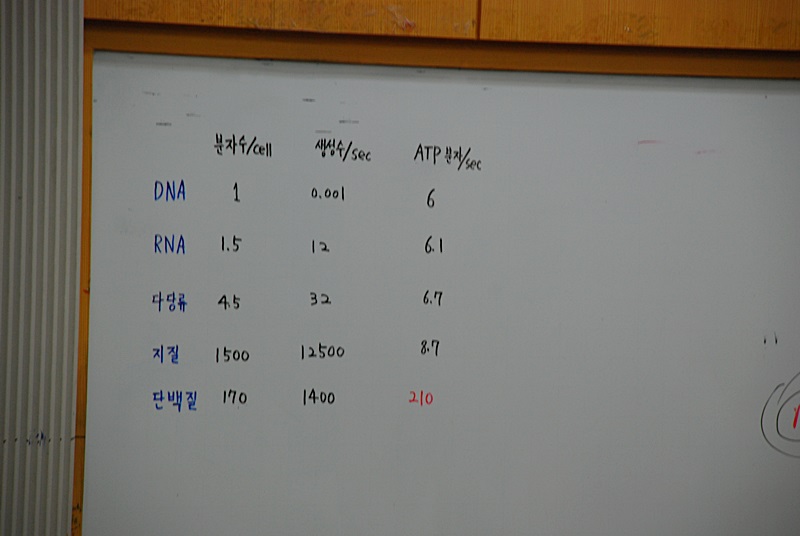 분자수/cell 생성수/sec ATP 분자/sec
DNA 1 0.001 6
RNA 1.5 12 6.1
다당류 4.5 32 6.7
지질 1500 12500 8.7
단백질 170 1400 210